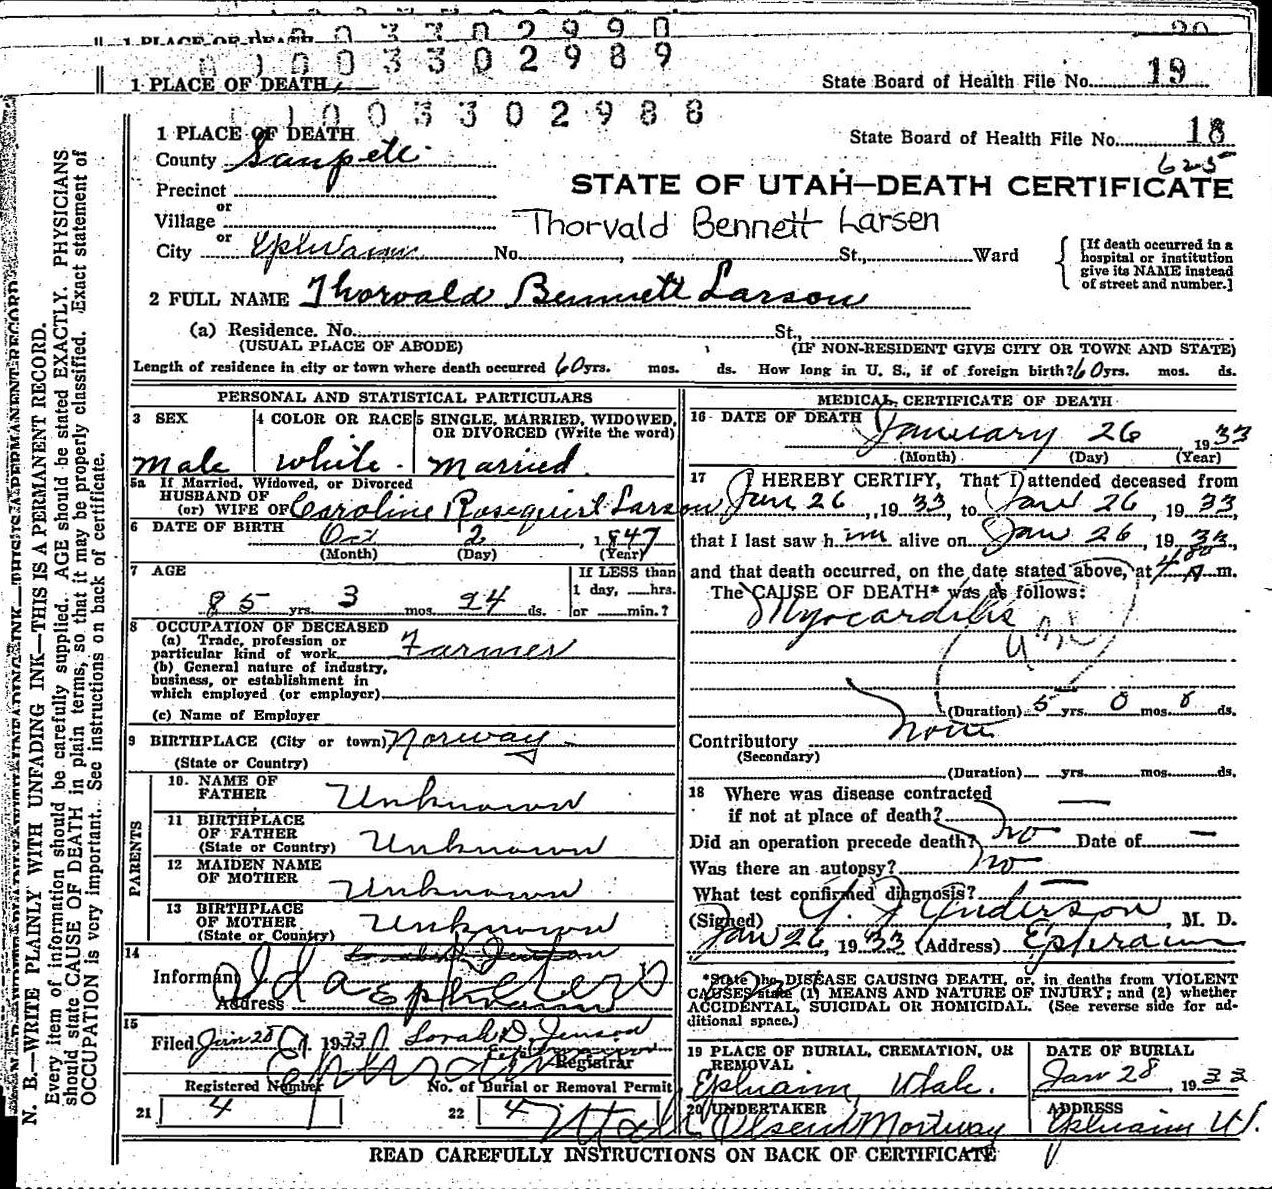 1 PLACE OF DEATH 0003302990 20
1 PLACE OF DEATH 0003302989 State Board of Health File No. 19
0003302988
1 PLACE OF DEATH State Board of Health File No. 18
County Sanpete 625
Precinct STATE OF UTAH—DEATH CERTIFICATE
or
Village Thorvald Bennett Larsen
or
City Ephraim No. , St., Ward [If death occurred in a hospital or institution give its NAME instead of street and number.]
2 FULL NAME Thorvald Bennett Larson
(a) Residence. No. St.,
(USUAL PLACE OF ABODE) (IF NON-RESIDENT GIVE CITY OR TOWN AND STATE)
Length of residence in city or town where death occurred 60 yrs. mos. ds. How long in U. S., if of foreign birth? 60 yrs. mos. ds.
PERSONAL AND STATISTICAL PARTICULARS
3 SEX 4 COLOR OR RACE 5 SINGLE, MARRIED, WIDOWED,
OR DIVORCED (Write the word)
Male white. Married.
5a If Married, Widowed, or Divorced
HUSBAND OF
(or) WIFE OF Caroline Rosequist Larson
6 DATE OF BIRTH Oct 2, 1847
(Month) (Day) (Year)
7 AGE If LESS than
1 day, hrs.
85 yrs. 3 mos. 24 ds. or min.?
8 OCCUPATION OF DECEASED
(a) Trade, profession or
particular kind of work Farmer
(b) General nature of industry,
business, or establishment in
which employed (or employer)
(c) Name of Employer
9 BIRTHPLACE (City or town) Norway
(State or Country)
PARENTS
10. NAME OF
FATHER Unknown
11 BIRTHPLACE
OF FATHER
(State or Country) Unknown
12 MAIDEN NAME
OF MOTHER Unknown
13 BIRTHPLACE
OF MOTHER
(State or Country) Unknown
14
Informant Ida Peters
Address Ephraim
15
Filed Jan 28, 1933 Sorah D. Jenson
Registrar
Ephraim
Registered Number No. of Burial or Removal Permit
21 4 22 4
Utah
MEDICAL CERTIFICATE OF DEATH
16 DATE OF DEATH January 26 1933
(Month) (Day) (Year)
17 I HEREBY CERTIFY, That I attended deceased from
Jan 26, 1933, to Jan 26, 1933,
that I last saw him alive on Jan 26, 1933,
and that death occurred, on the date stated above, at 400 A m.
The CAUSE OF DEATH* was as follows:
Myocarditis
(Duration) 5 yrs. 0 mos. 0 ds.
Contributory None
(Secondary)
(Duration) yrs. mos. ds.
18 Where was disease contracted
if not at place of death? —
Did an operation precede death? no Date of —
Was there an autopsy? no
What test confirmed diagnosis? —
(Signed) Anderson, M. D.
Jan 26, 1933 (Address) Ephraim
*State the DISEASE CAUSING DEATH, or, in deaths from VIOLENT
CAUSES state (1) MEANS AND NATURE OF INJURY; and (2) whether
ACCIDENTAL, SUICIDAL OR HOMICIDAL. (See reverse side for ad-
ditional space.)
19 PLACE OF BURIAL, CREMATION, OR DATE OF BURIAL
REMOVAL
Ephraim, Utah. Jan 28 1933
20 UNDERTAKER ADDRESS
Olsen Mortuary Ephraim Ut.
READ CAREFULLY INSTRUCTIONS ON BACK OF CERTIFICATE
N. B.—WRITE PLAINLY WITH UNFADING INK—THIS IS A PERMANENT RECORD.
Every item of information should be carefully supplied. AGE should be stated EXACTLY. PHYSICIANS
should state CAUSE OF DEATH in plain terms, so that it may be properly classified. Exact statement of
OCCUPATION is very important. See instructions on back of certificate.